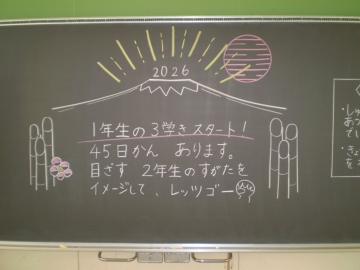 2026
1年生の3学きスタート！
45日かん あります。
目ざす 2年生のすがたを
イメージして、レッツゴー